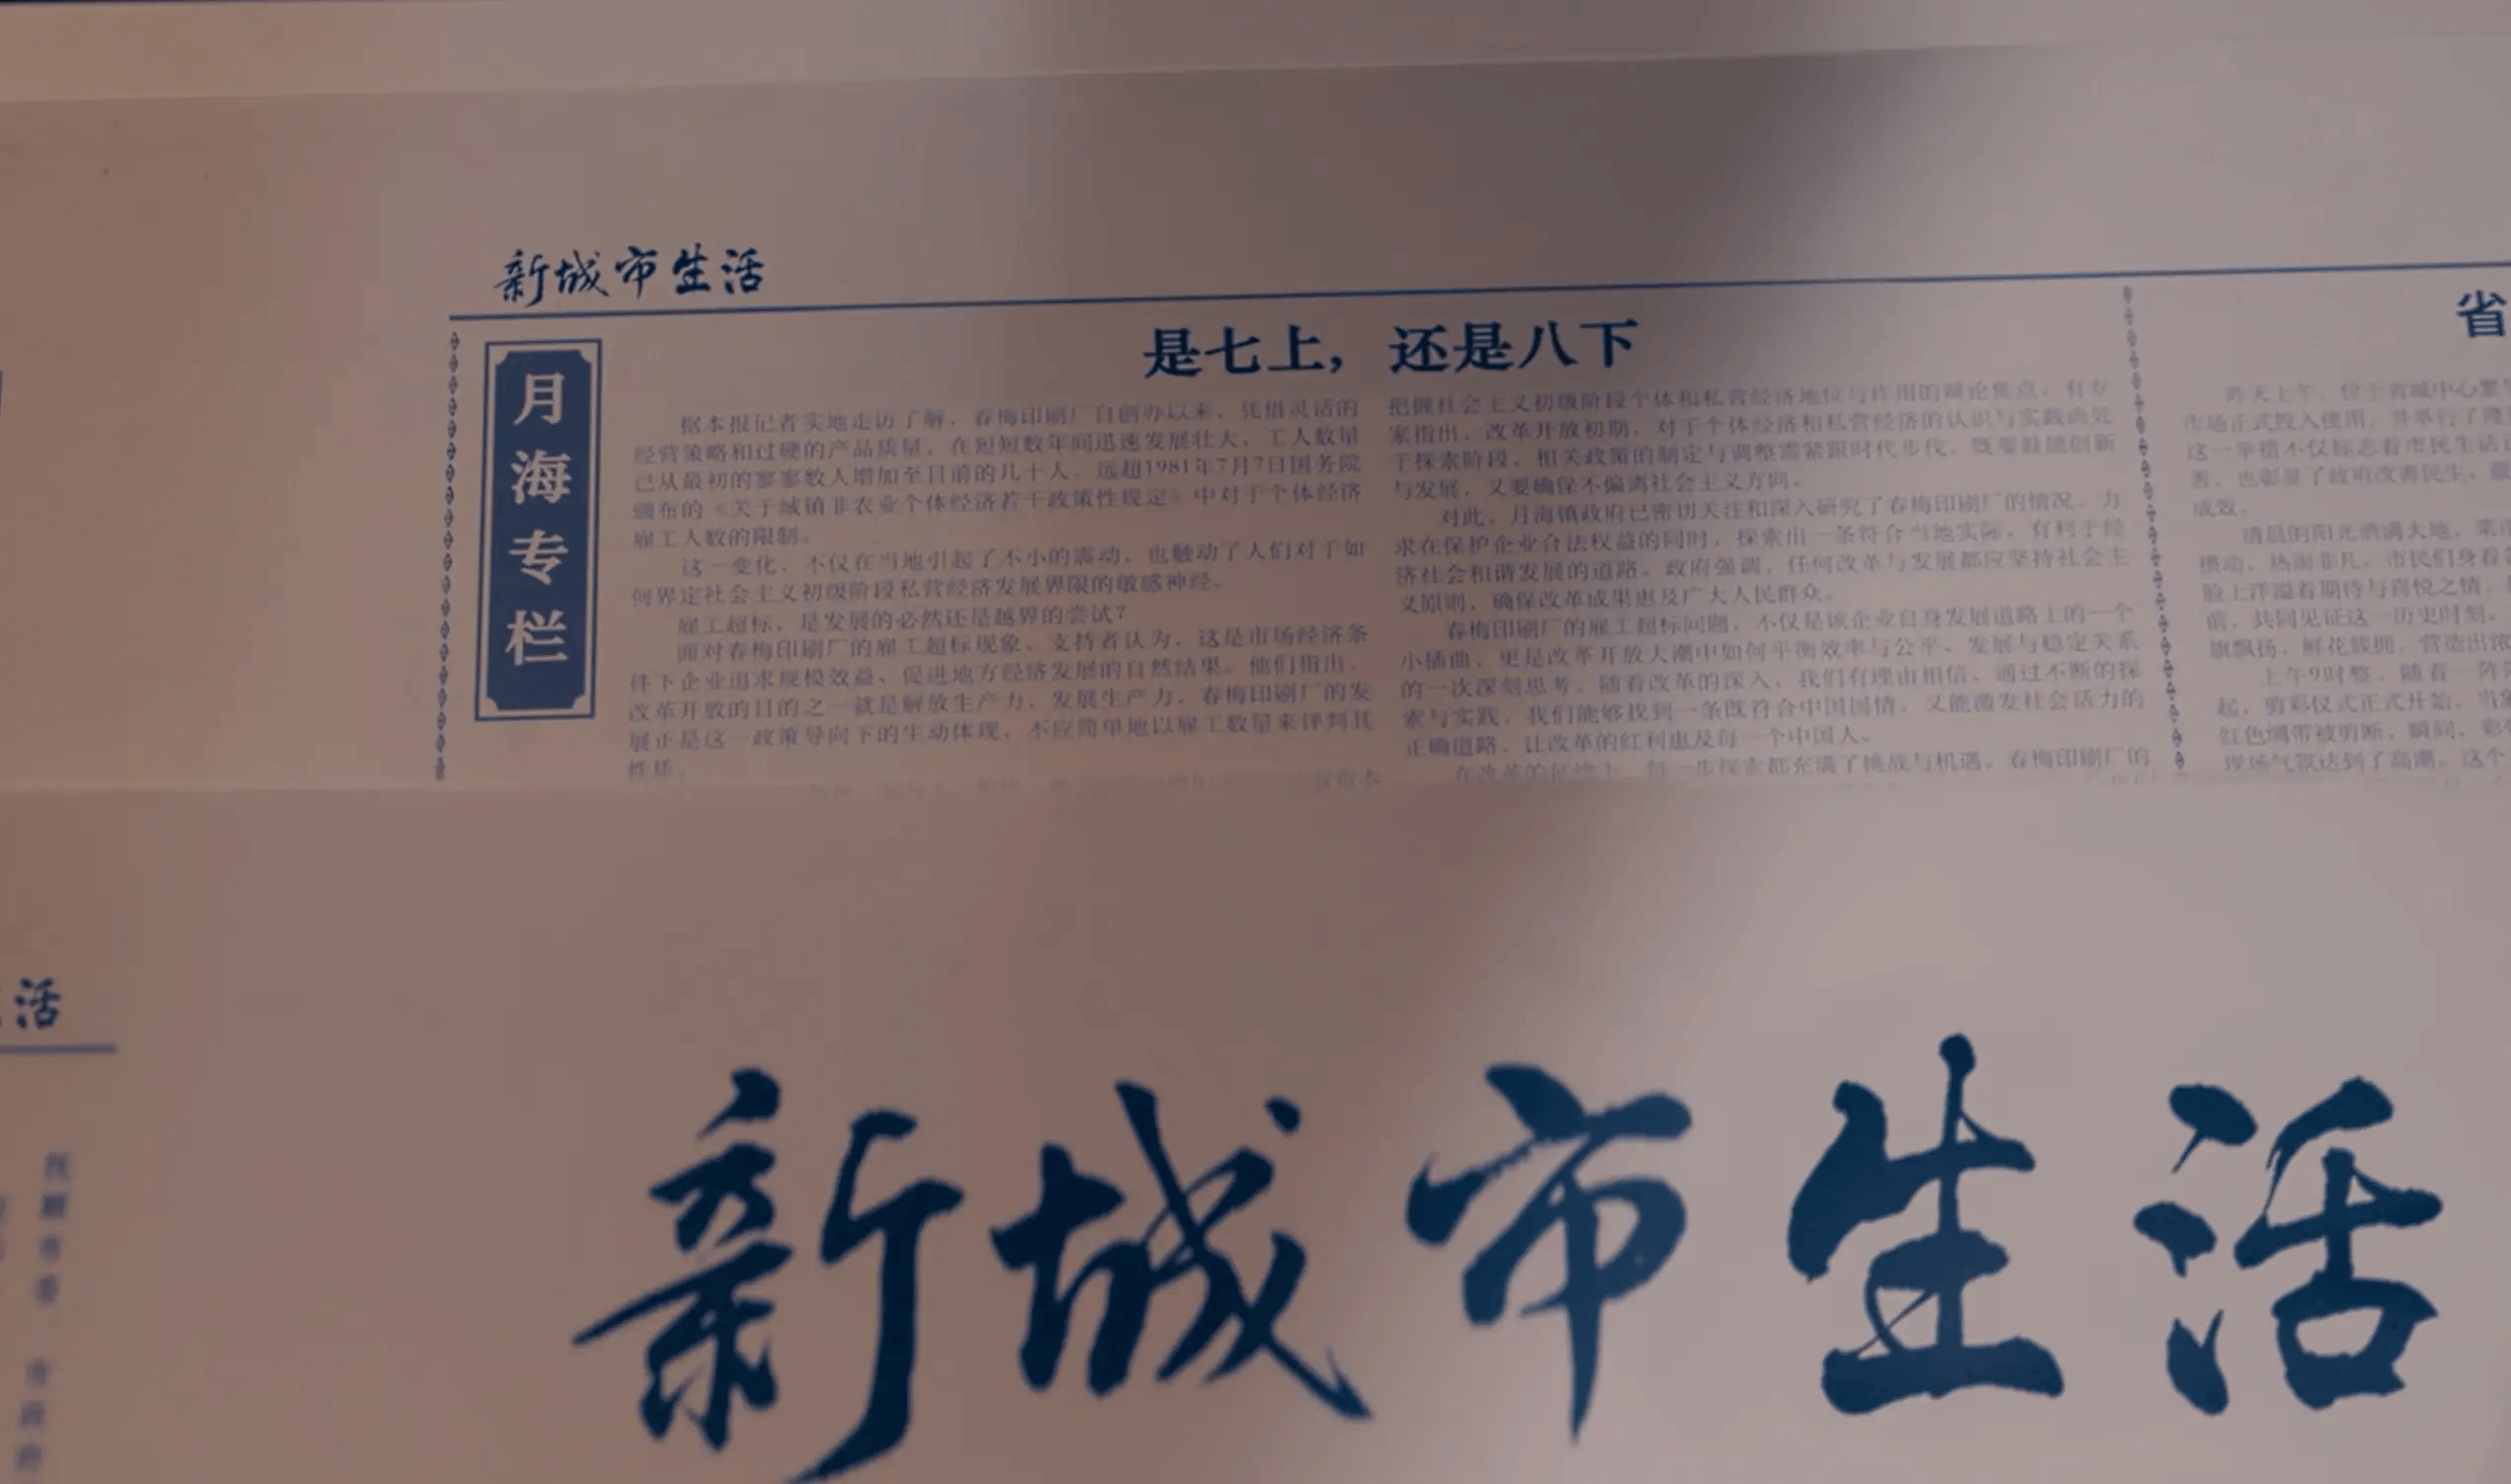 新城市生活
月海专栏
是七上，还是八下
据本报记者实地走访了解，春梅印刷厂自创办以来，凭借灵活的
经营策略和过硬的产品质量，在短短数年间迅速发展壮大，工人数量
已从最初的寥寥数人增加至目前的几十人，远超1981年7月7日国务院
颁布的《关于城镇非农业个体经济若干政策性规定》中对于个体经济
雇工人数的限制。
这一变化，不仅在当地引起了不小的震动，也触动了人们对于如
何界定社会主义初级阶段私营经济发展界限的敏感神经。
雇工超标，是发展的必然还是越界的尝试？
面对春梅印刷厂的雇工超标现象，支持者认为，这是市场经济条
件下企业追求规模效益、促进地方经济发展的自然结果。他们指出，
改革开放的目的之一就是解放生产力，发展生产力，春梅印刷厂的发
展正是这一政策导向下的生动体现，不应简单地以雇工数量来评判其
性质。
把握社会主义初级阶段个体和私营经济地位与作用的辩论焦点。有专
家指出，改革开放初期，对于个体经济和私营经济的认识与实践尚处
于探索阶段，相关政策的制定与调整需紧跟时代步伐，既要鼓励创新
与发展，又要确保不偏离社会主义方向。
对此，月海镇政府已密切关注和深入研究了春梅印刷厂的情况，力
求在保护企业合法权益的同时，探索出一条符合当地实际，有利于经
济社会和谐发展的道路。政府强调，任何改革与发展都应坚持社会主
义原则，确保改革成果惠及广大人民群众。
春梅印刷厂的雇工超标问题，不仅是该企业自身发展道路上的一个
小插曲，更是改革开放大潮中如何平衡效率与公平、发展与稳定关系
的一次深刻思考。随着改革的深入，我们有理由相信，通过不断的探
索与实践，我们能够找到一条既符合中国国情，又能激发社会活力的
正确道路，让改革的红利惠及每一个中国人。
在改革的征途上，每一步探索都充满了挑战与机遇。春梅印刷厂的
省
昨天上午，位于省城中心繁
市场正式投入使用，并举行了隆
这一举措不仅标志着市民生活
善，也彰显了政府改善民生、
成效。
清晨的阳光洒满大地，菜市
攒动，热闹非凡。市民们身着
脸上洋溢着期待与喜悦之情，
前，共同见证这一历史时刻。
旗飘扬，鲜花簇拥，营造出浓
上午9时整，随着一阵
起，剪彩仪式正式开始。当
红色绸带被剪断，瞬间，彩
现场气氛达到了高潮。这个
活
新城市生活